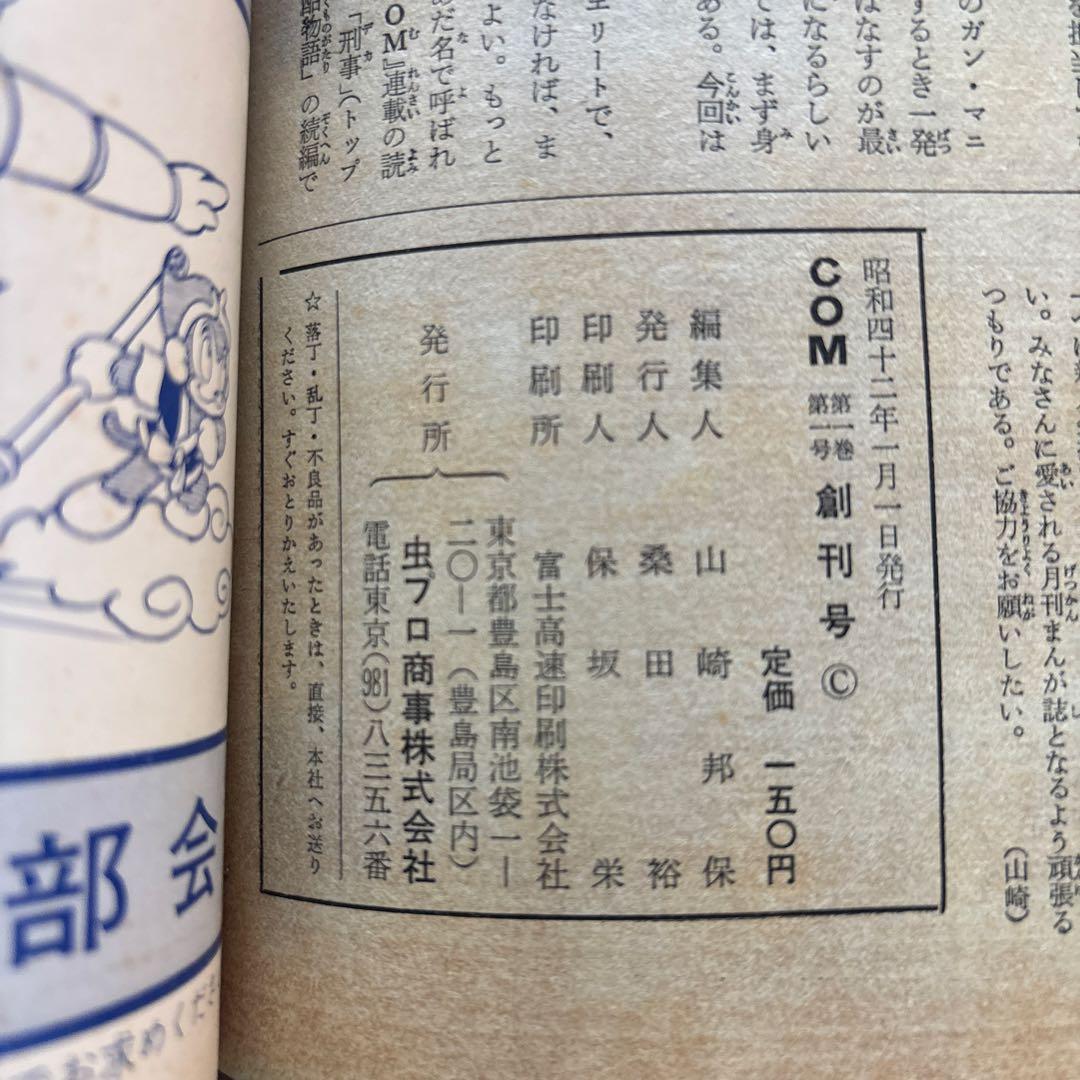 のガン・マニ
するとき一発
はなすのが最
になるらしい
ては、まず身
ある。今回は
エリートで、
なければ、ま
よい。もっと
だ名で呼ばれ
OM』連載の読
「刑事」(トップ
物語」の続編で
い。みなさんに愛される月刊まんが誌となるよう頑張る
つもりである。ご協力をお願いしたい。
(山崎)
昭和四十二年一月一日発行
COM 第一巻 第一号 創刊号 ©
定価 一五〇円
編集人 山崎邦保
発行人 桑田裕
印刷人 保坂栄
印刷所 富士高速印刷株式会社
東京都豊島区南池袋一ー
二〇ー一(豊島局区内)
発行所 虫プロ商事株式会社
電話東京(981)八三五六番
☆落丁・乱丁・不良品があったときは、直接、本社へお送り
ください。すぐおとりかえいたします。
部会
お求めくださ